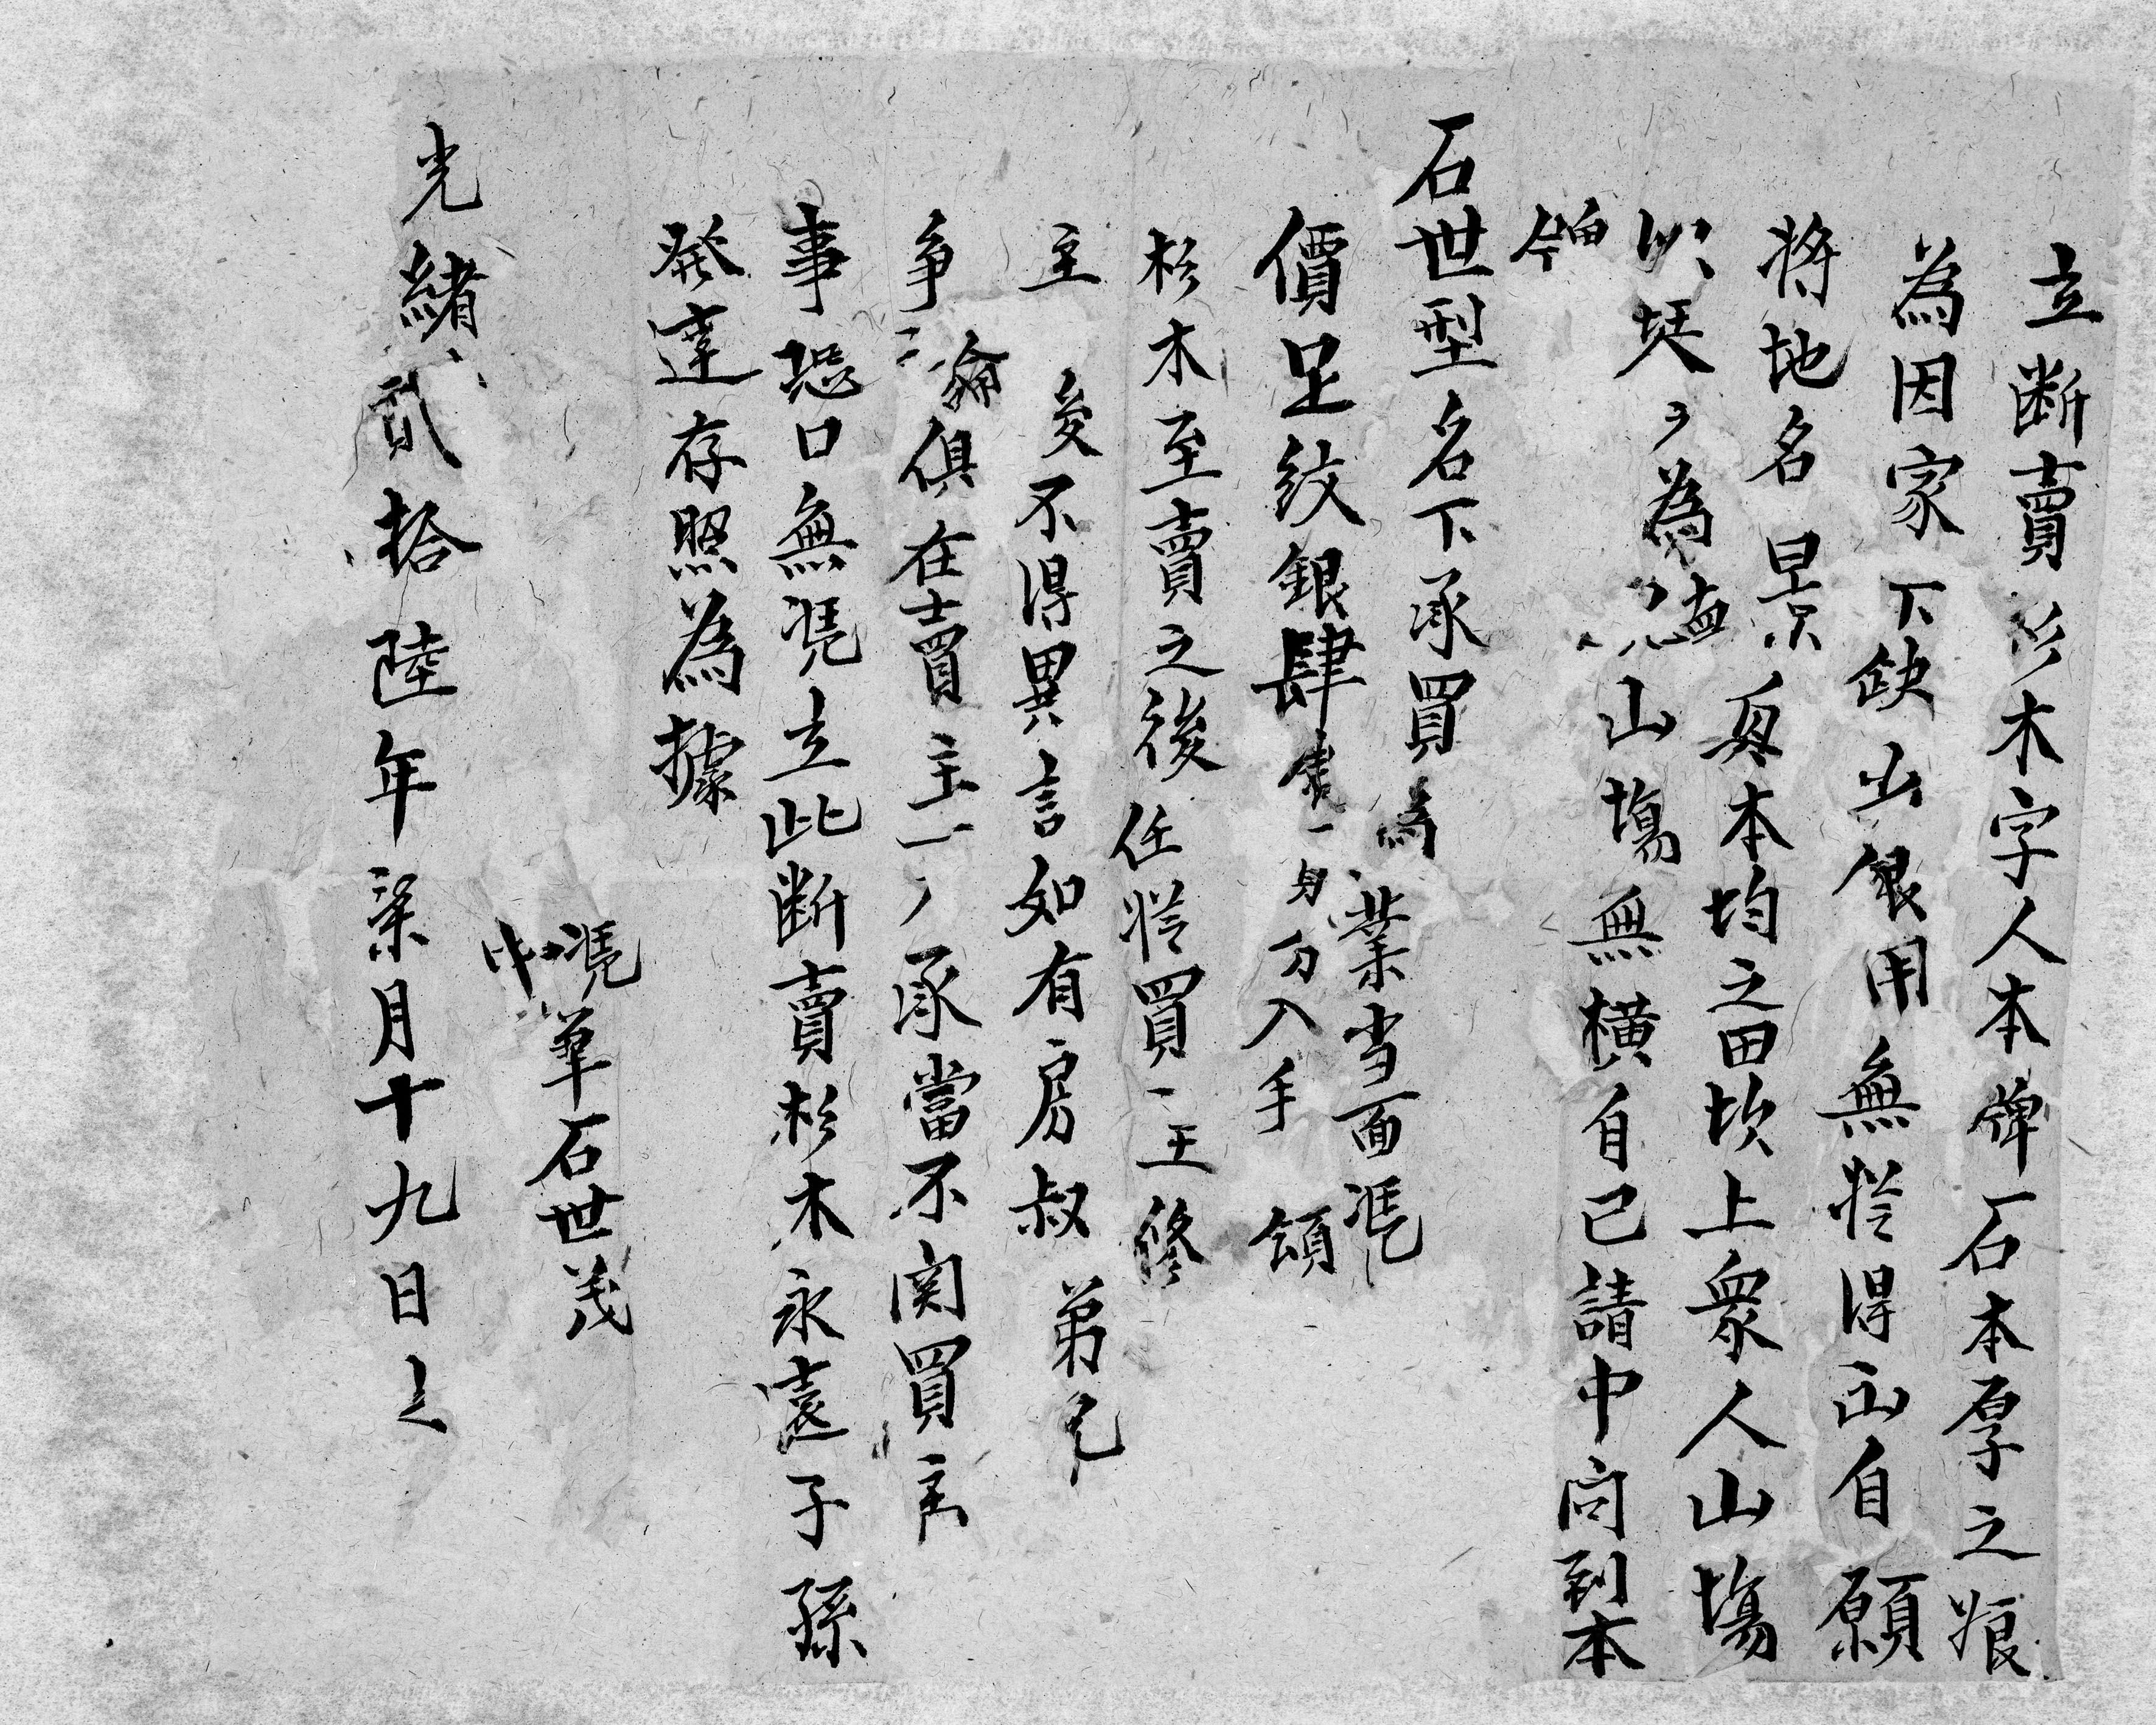 立断賣杉木字人本牌石本厚之痕
為因家下缺少銀用無従得出自願
將地名景本均之田坎上衆人山塲
以埂為山塲無横自己請中向到本
牌
石世型名下承買為業当面馮
價足紋銀肆一分入手領
杉木至賣之後任従買主修
主後不得異言如有房叔弟兄
争論俱在賣主一承當不関買主
事恐口無馮立此断賣杉木永遠子孫
発達存照為據
馮中筆石世茂
光緒貳拾陸年柒月十九日立